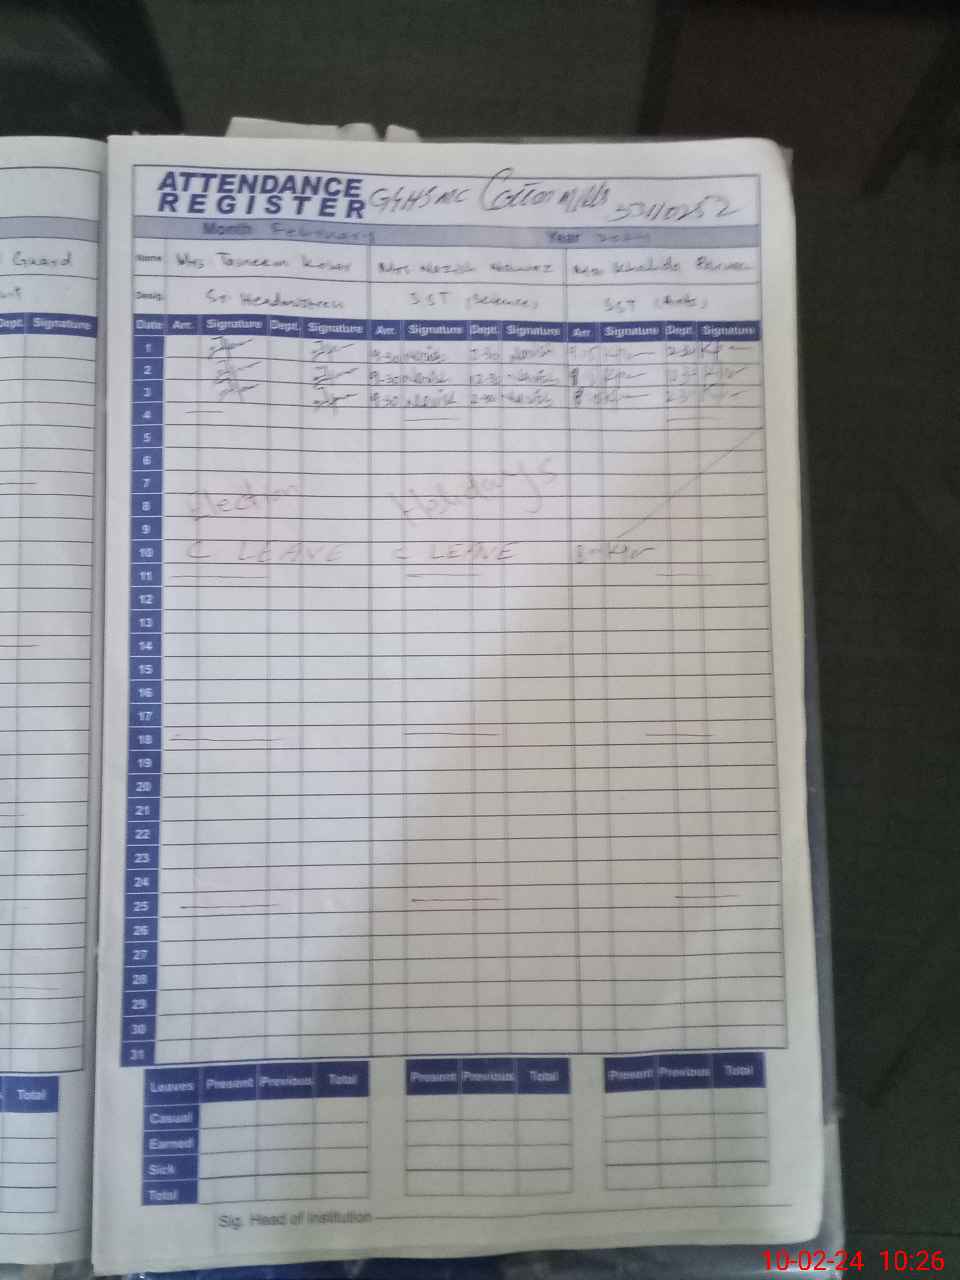 ATTENDANCE
REGISTER
Cotton Mills
Month February Year 2024
Guard
Name Mrs Tasneem Kosar Mrs Nazish Nawaz Mrs Khalida Parveen
Desig. Sr Headmistress SST (Science) SST (Arts)
Dept. Signature
Date Arr. Signature Dept. Signature Arr. Signature Dept. Signature Arr. Signature Dept. Signature
1
2
3
4
5
6
7
8 Election Holidays
9
10 C LEAVE C LEAVE
11
12
13
14
15
16
17
18
19
20
21
22
23
24
25
26
27
28
29
30
31
Total
Leaves Present Previous Total Present Previous Total Present Previous Total
Casual
Earned
Sick
Total
Sig. Head of Institution
10-02-24 10:26